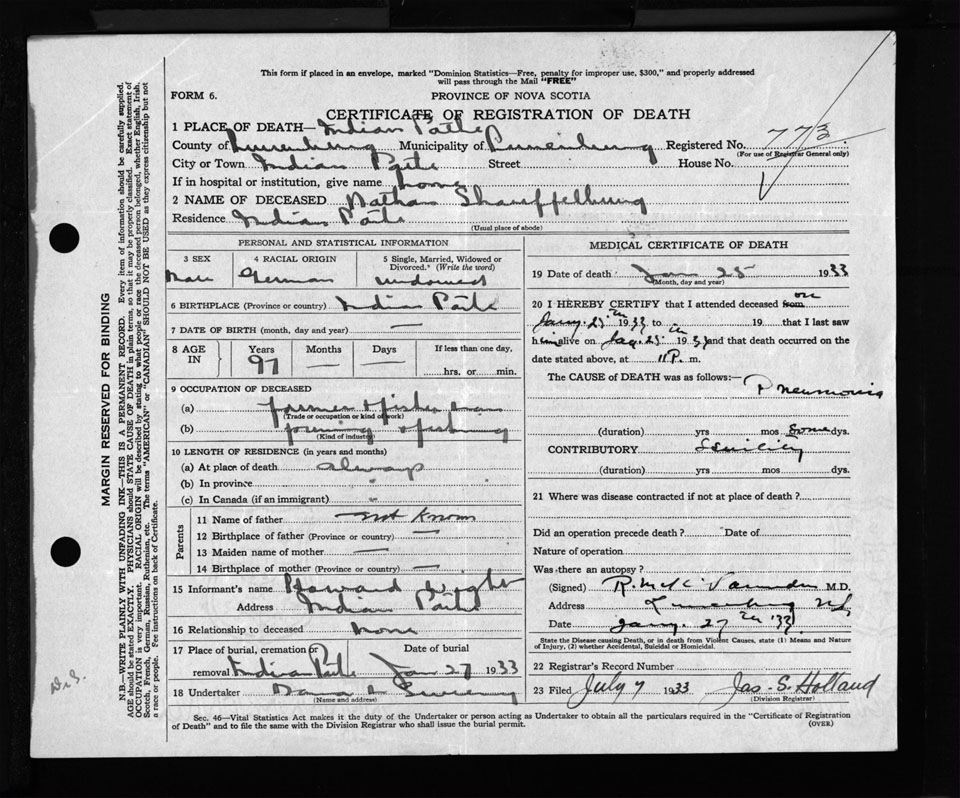 This form if placed in an envelope, marked "Dominion Statistics—Free, penalty for improper use, $300," and properly addressed
will pass through the Mail "FREE"
FORM 6.
PROVINCE OF NOVA SCOTIA
CERTIFICATE OF REGISTRATION OF DEATH
1 PLACE OF DEATH— Indian Path
County of Lunenburg Municipality of Lunenburg Registered No. 773
(For use of Registrar General only)
City or Town Indian Path Street House No.
If in hospital or institution, give name home
2 NAME OF DECEASED Nathan
Residence Indian Path
(Usual place of abode)
PERSONAL AND STATISTICAL INFORMATION
3 SEX Male
4 RACIAL ORIGIN German
5 Single, Married, Widowed or Divorced.* (Write the word) widowed
6 BIRTHPLACE (Province or country) Indian Path
7 DATE OF BIRTH (month, day and year) —
8 AGE IN Years 97 Months — Days — If less than one day, hrs. or min.
9 OCCUPATION OF DECEASED
(a) farmer & fisherman
(Trade or occupation or kind of work)
(b) farming & fishing
(Kind of industry)
10 LENGTH OF RESIDENCE (in years and months)
(a) At place of death always
(b) In province
(c) In Canada (if an immigrant)
Parents
11 Name of father not known
12 Birthplace of father (Province or country) —
13 Maiden name of mother —
14 Birthplace of mother (Province or country) —
15 Informant's name Howard
Address Indian Path
16 Relationship to deceased none
17 Place of burial, cremation or removal Indian Path Date of burial Jan 27 1933
18 Undertaker Sweeny
(Name and address)
MEDICAL CERTIFICATE OF DEATH
19 Date of death Jan 25 1933
(Month, day and year)
20 I HEREBY CERTIFY that I attended deceased from on
Jany. 25th 1933 to 19 that I last saw
him alive on Jan. 25th 1933 and that death occurred on the
date stated above, at 11 P. m.
The CAUSE of DEATH was as follows: Pneumonia
(duration) yrs mos Some dys.
CONTRIBUTORY Senility
(duration) yrs. mos. dys.
21 Where was disease contracted if not at place of death?
Did an operation precede death? Date of
Nature of operation
Was there an autopsy?
(Signed) M.D.
Address Lunenburg NS
Date Jany. 27th '33
State the Disease causing Death, or in death from Violent Causes, state (1) Means and Nature
of Injury, (2) whether Accidental, Suicidal or Homicidal.
22 Registrar's Record Number
23 Filed July 7 1933 Jas. S. Holland
(Division Registrar)
Sec. 46—Vital Statistics Act makes it the duty of the Undertaker or person acting as Undertaker to obtain all the particulars required in the "Certificate of Registration
of Death" and to file the same with the Division Registrar who shall issue the burial permit.
(OVER)
MARGIN RESERVED FOR BINDING
N.B.—WRITE PLAINLY WITH UNFADING INK—THIS IS A PERMANENT RECORD. Every item of information should be carefully supplied.
AGE should be stated EXACTLY. PHYSICIANS should STATE CAUSE OF DEATH in plain terms, so that it may be properly classified. Exact statement of
OCCUPATION is very important. RACIAL ORIGIN will be described by stating to what people or race the deceased person belonged, whether English, Irish,
Scotch, French, German, Russian, Ruthenian, etc. The terms "AMERICAN" or "CANADIAN" SHOULD NOT BE USED as they express citizenship but not
a race or people. Fee instructions on back of Certificate.